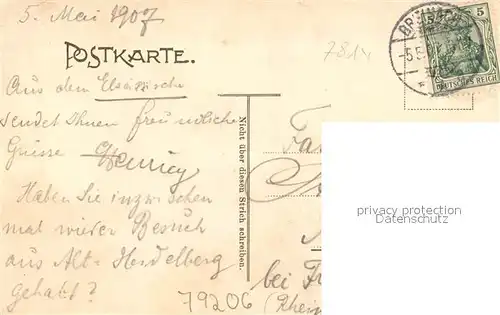 5. Mai 1907
POSTKARTE.
7814
BREISACH
5
-5.5.
DEUTSCHES REICH
Aus dem
sendet Ihnen freundliche
Grüsse Hennig
Haben Sie inzwischen
mal wieder Besuch
aus Alt-Heidelberg
gehabt?
Nicht über diesen Strich schreiben.
bei
79206
(Rhein
privacy protection
Datenschutz